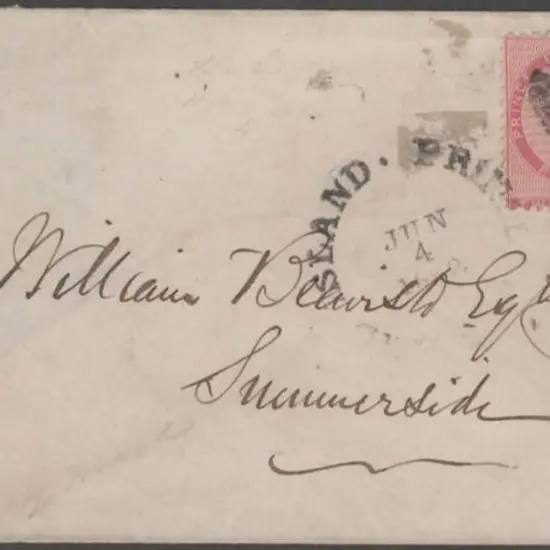 PRINC
SLAND. PRIN E
JUN
4
William Beairsto Esq
Summerside